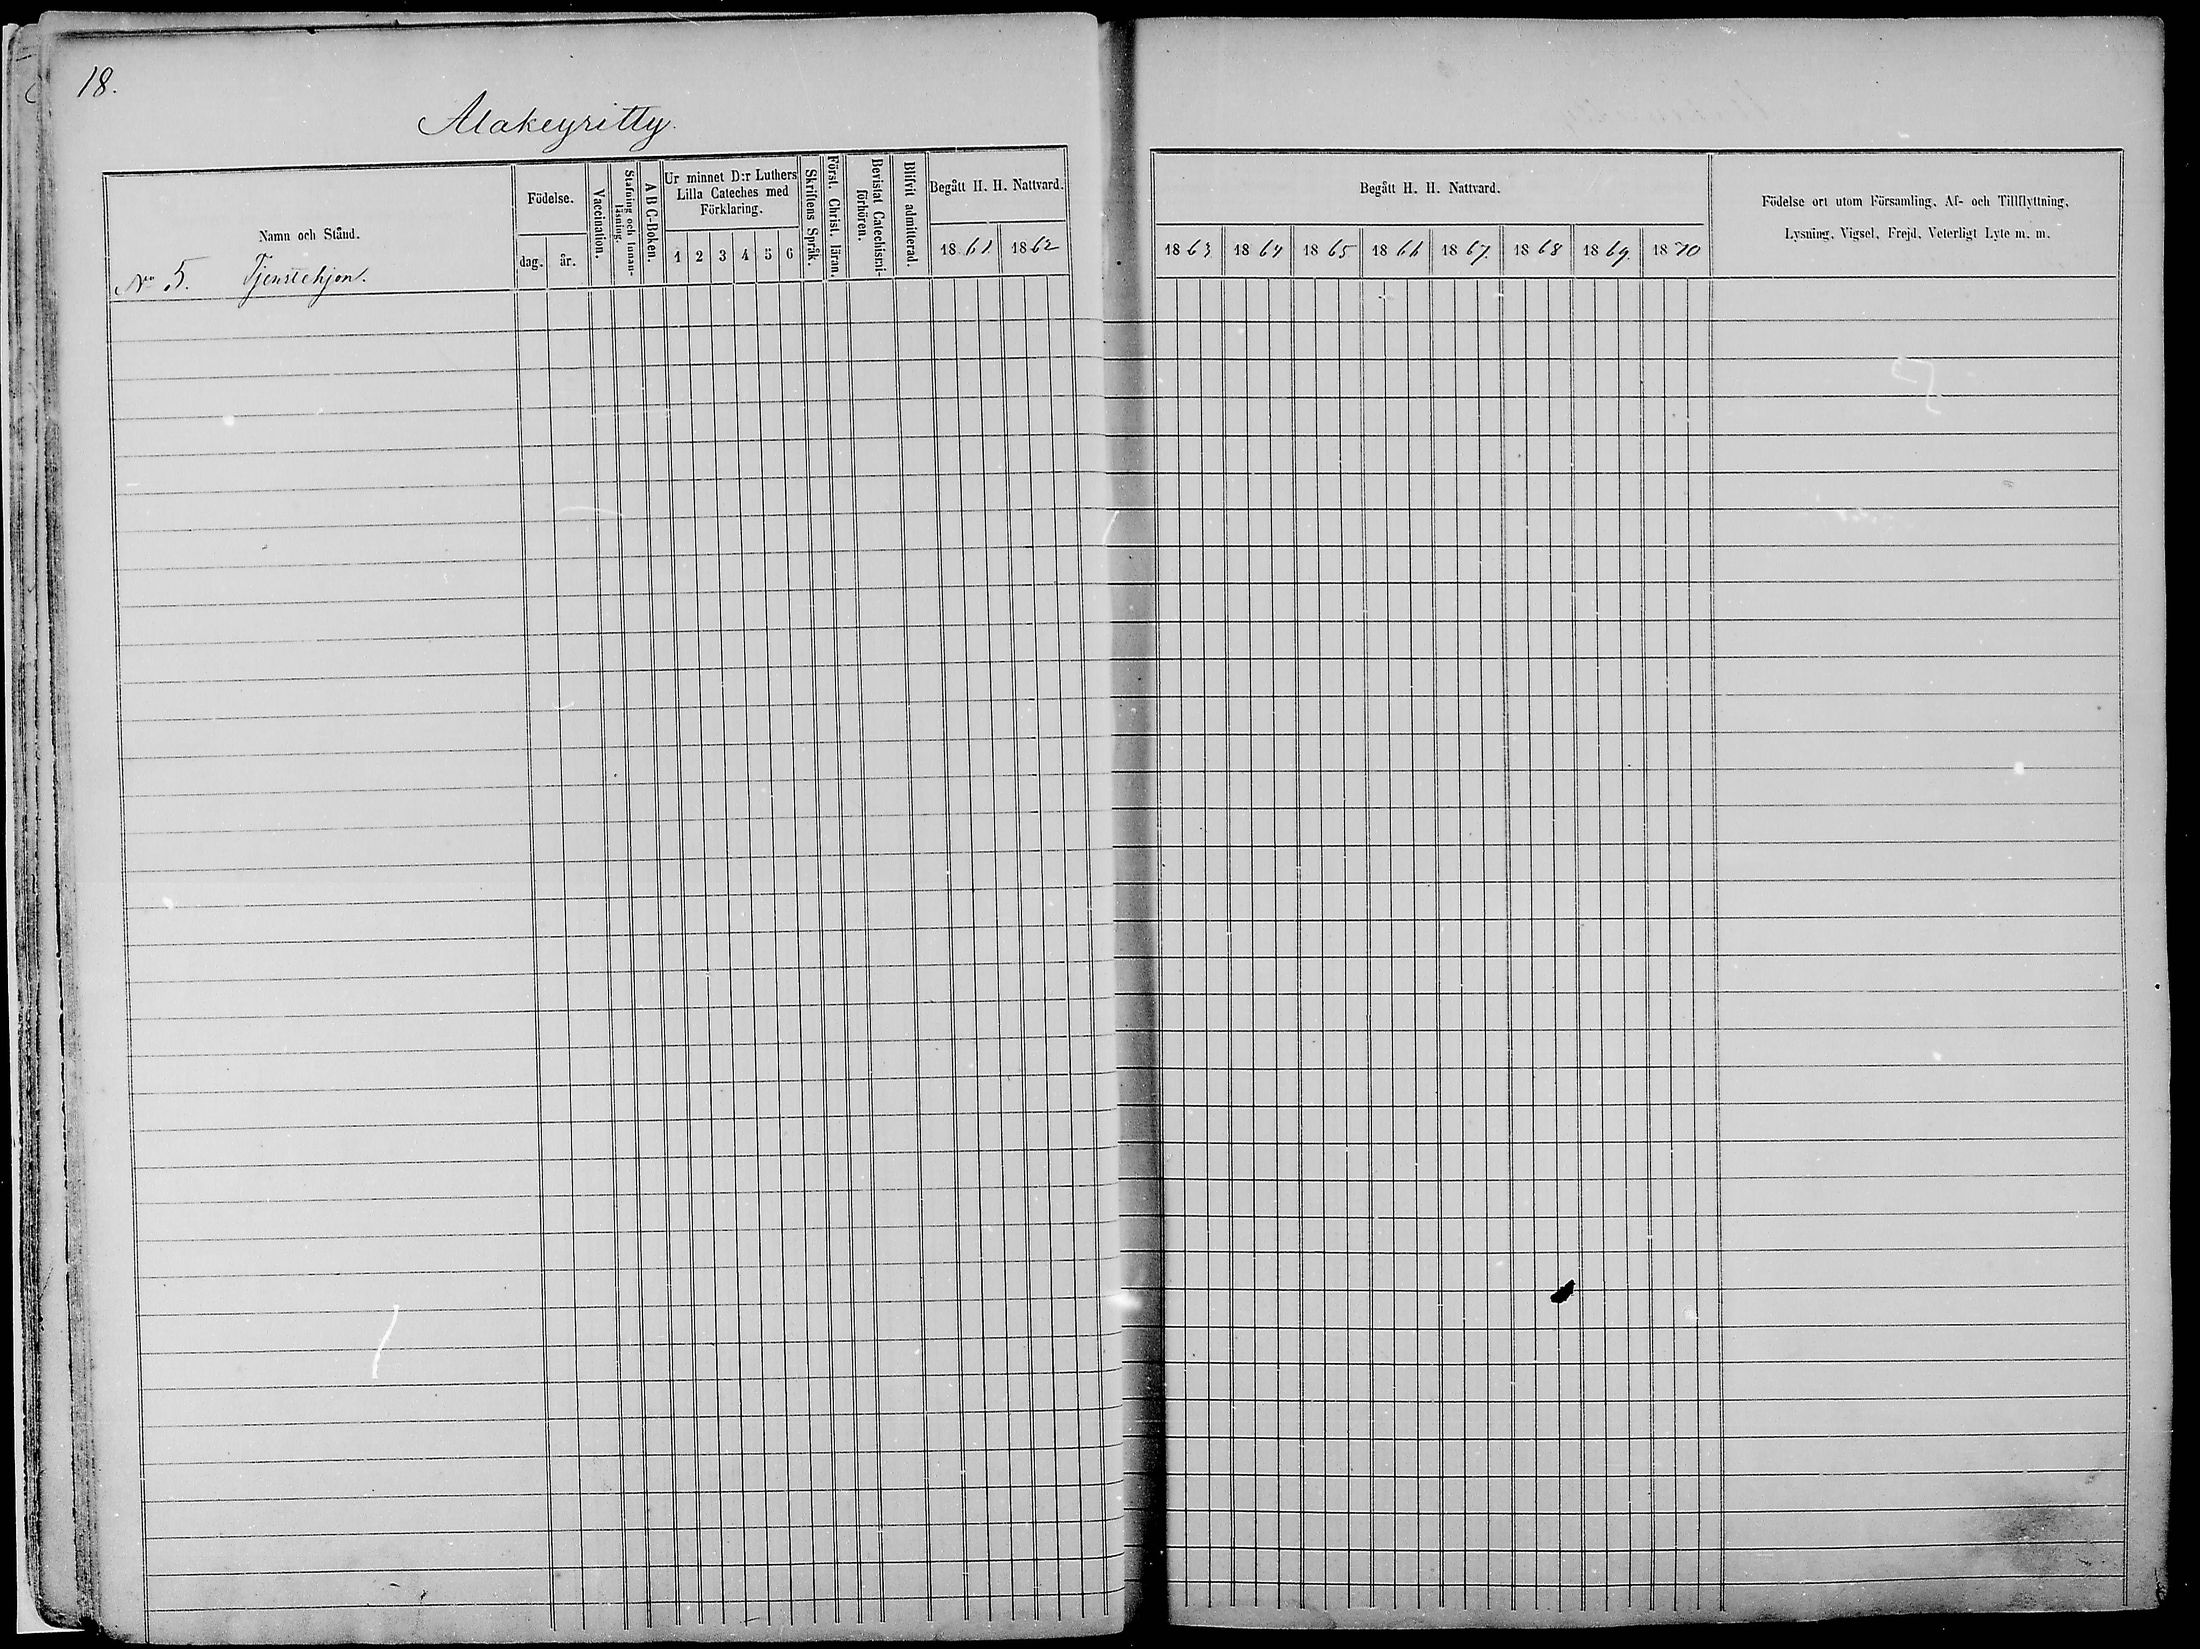 18.
Alakeyritty.
Namn och Stånd.
No 5. Tjenstehjon.
Födelse.
dag. år.
Vaccination.
Stafning och Innanläsning.
A B C-Boken.
Ur minnet D:r Luthers
Lilla Cateches med
Förklaring.
1 2 3 4 5 6
Skriftens Språk.
Först. Christ. läran.
Bevistat Catechismi-
förhören.
Blifvit admitterad.
Begått H. H. Nattvard.
1861 1862
Begått H. H. Nattvard.
1863 1864 1865 1866 1867. 1868 1869. 1870
Födelse ort utom Församling, Af- och Tillflyttning,
Lysning, Vigsel, Frejd, Veterligt Lyte m. m.